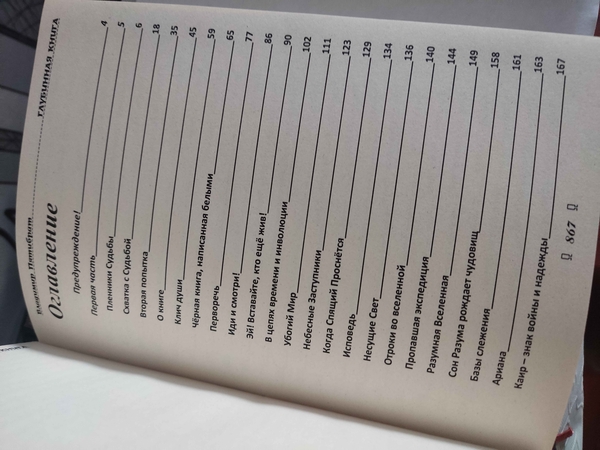 Владимир Пятибрат ГЛУБИННАЯ КНИГА
Оглавление
Предупреждение! 4
Первая часть 5
Пленники Судьбы 6
Схватка с Судьбой 18
Вторая попытка 35
О книге 45
Клич души 59
Чёрная книга, написанная белыми 65
Перворечь 77
Иди и смотри! 86
Эй! Вставайте, кто ещё жив! 90
В цепях времени и инволюции 102
Убогий Мир 111
Небесные Заступники 123
Когда Спящий Проснётся 129
Исповедь 134
Несущие Свет 136
Отроки во вселенной 140
Пропавшая экспедиция 144
Разумная Вселенная 149
Сон Разума рождает чудовищ 158
Базы слежения 161
Ариана 163
Каир – знак войны и надежды 167
867